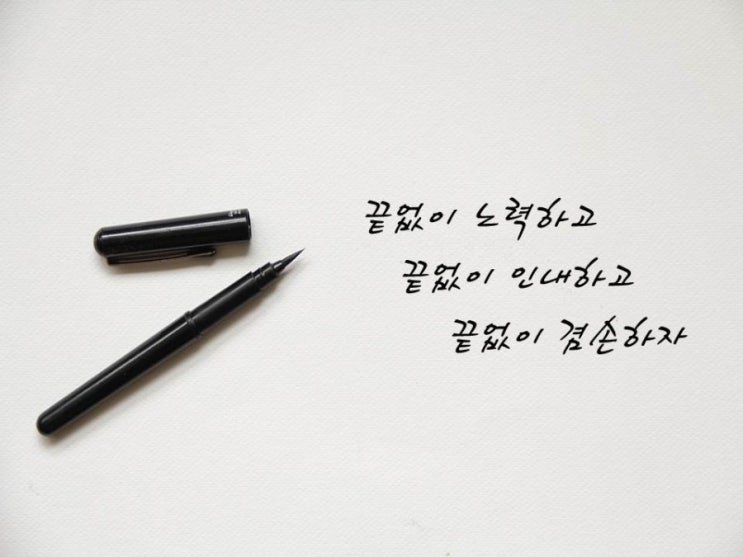 끝없이 노력하고
끝없이 인내하고
끝없이 겸손하자